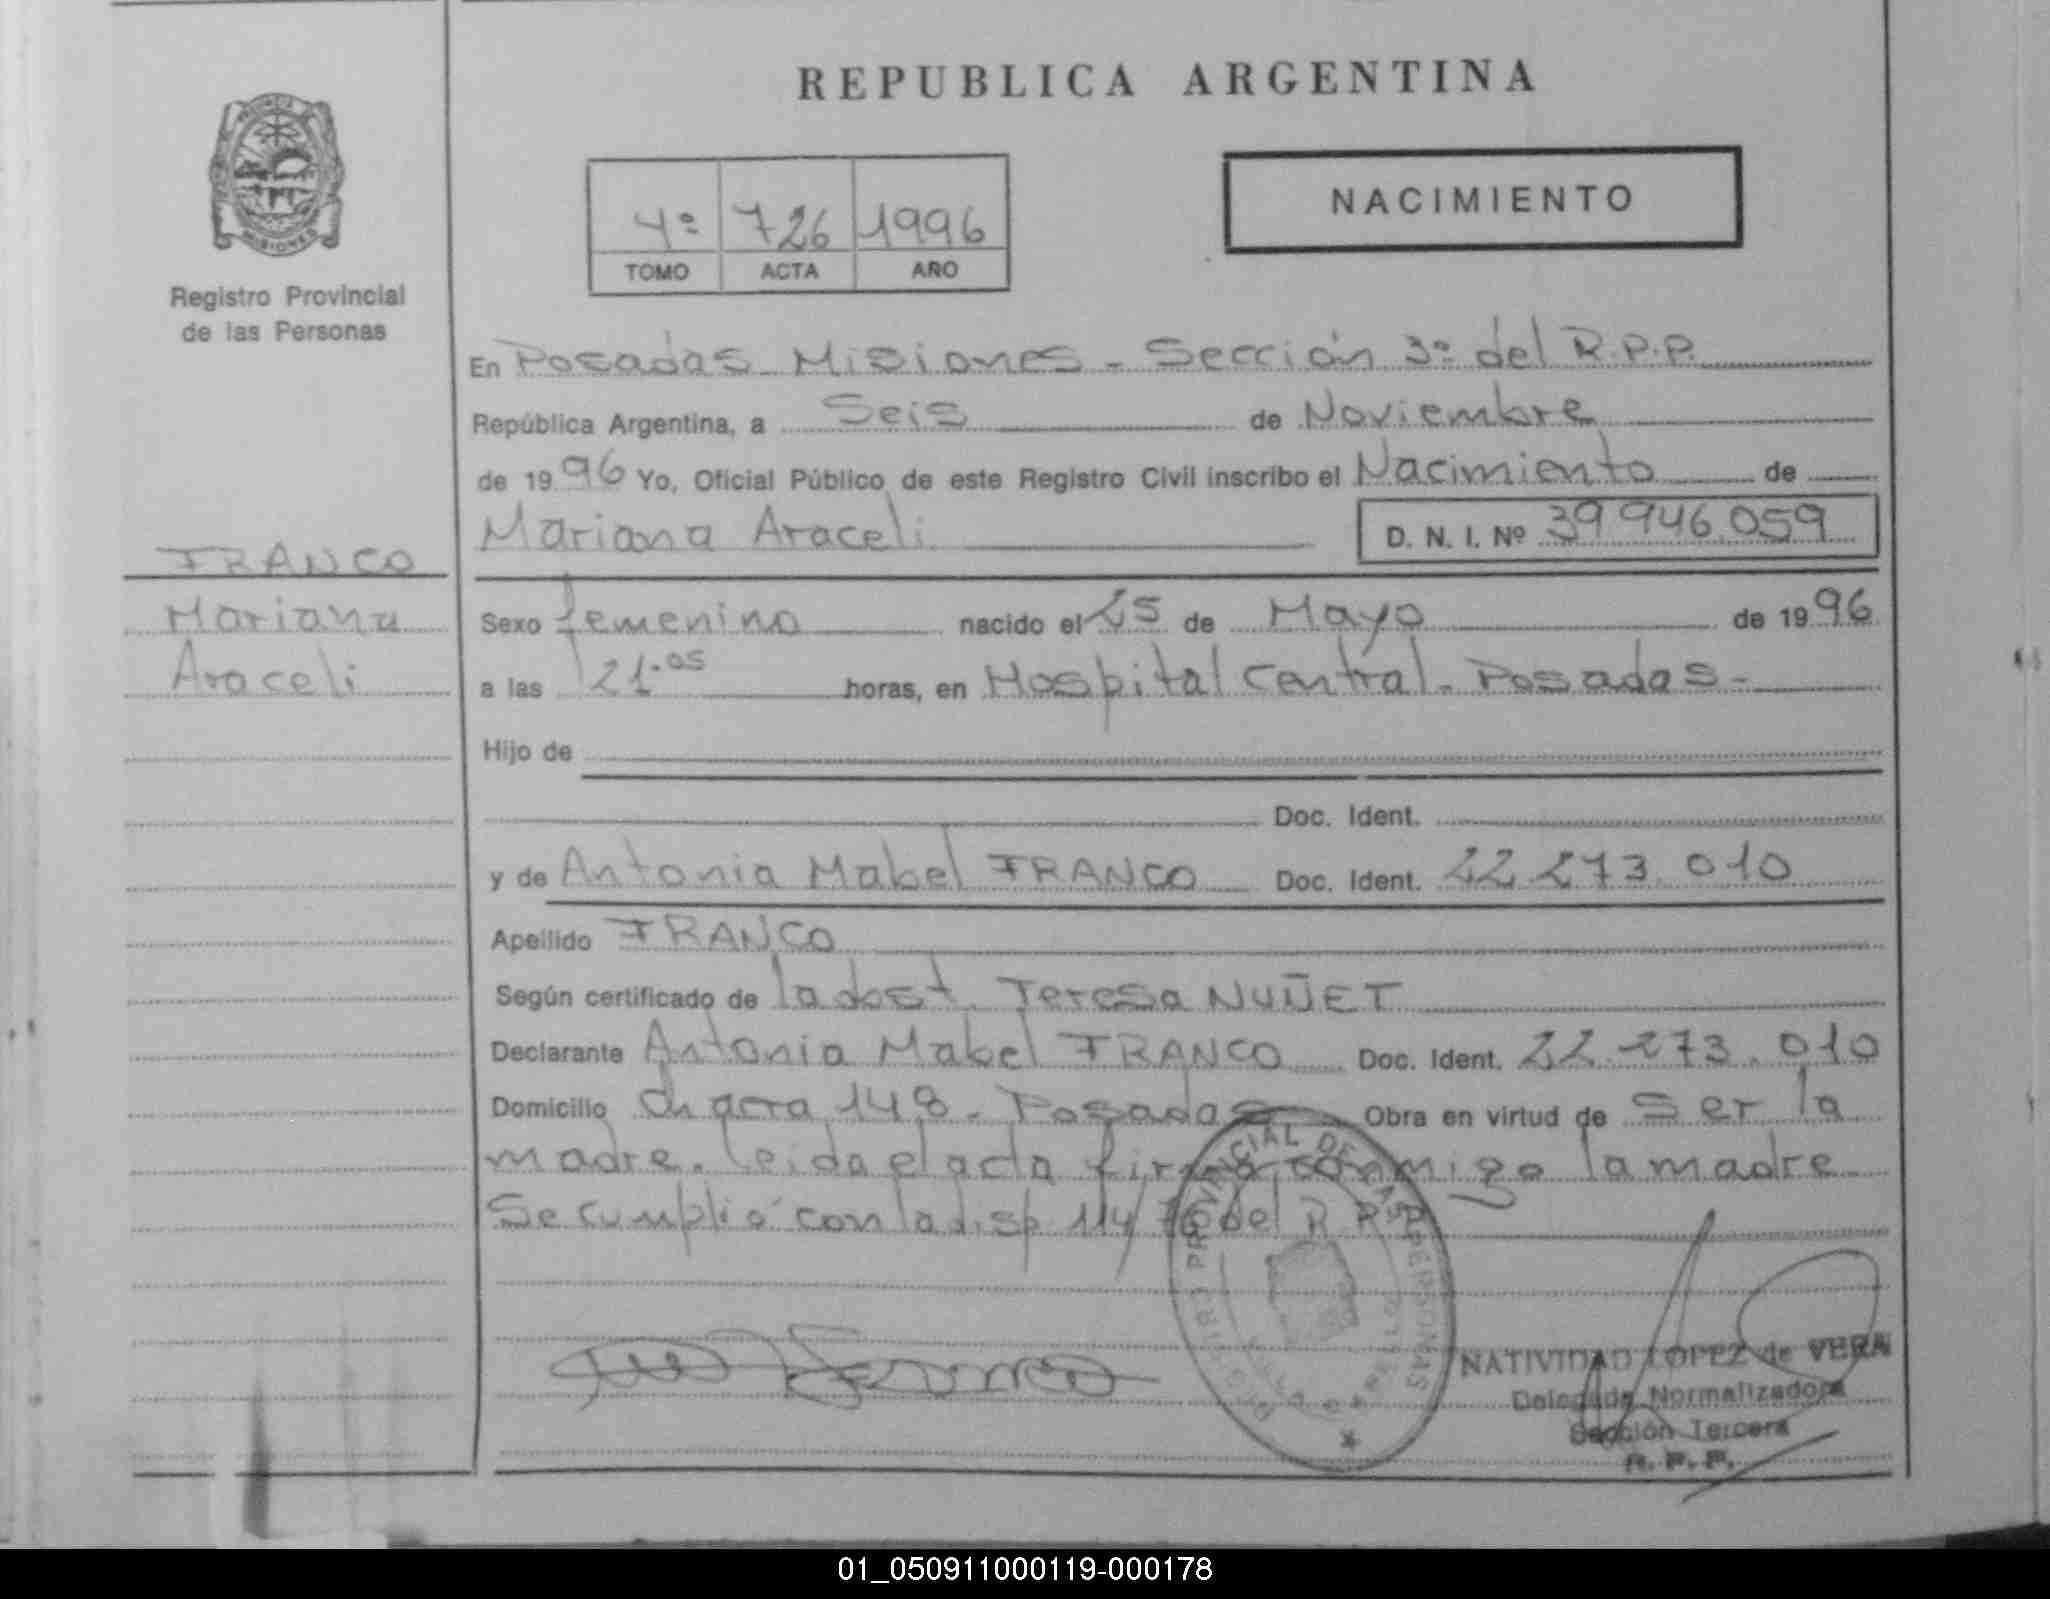 REPUBLICA ARGENTINA
MISIONES
Registro Provincial
de las Personas
4º 726 1996
TOMO ACTA AÑO
NACIMIENTO
En Posadas Misiones - Sección 3º del R.P.P.
República Argentina, a Seis de Noviembre
de 1996 Yo, Oficial Público de este Registro Civil inscribo el Nacimiento de
Mariana Araceli D. N. I. Nº 39 946.059
FRANCO
Mariana
Araceli
Sexo femenino nacido el 25 de Mayo de 1996
a las 21.05 horas, en Hospital Central - Posadas -
Hijo de
Doc. Ident.
y de Antonia Mabel FRANCO Doc. Ident. 22.273.010
Apellido FRANCO
Según certificado de la dost. Teresa NUÑET
Declarante Antonia Mabel FRANCO Doc. Ident. 22.273.010
Domicilio Chacra 148 - Posadas Obra en virtud de Ser la
madre. Leida el acta firma conmigo la madre
Se cumplió con la disp 114/ del R.P.P.
REGISTRO PROVINCIAL DE LAS PERSONAS
NATIVIDAD LOPEZ de VERA
Delegada Normalizadora
Sección Tercera
R. P. P.
01_050911000119-000178